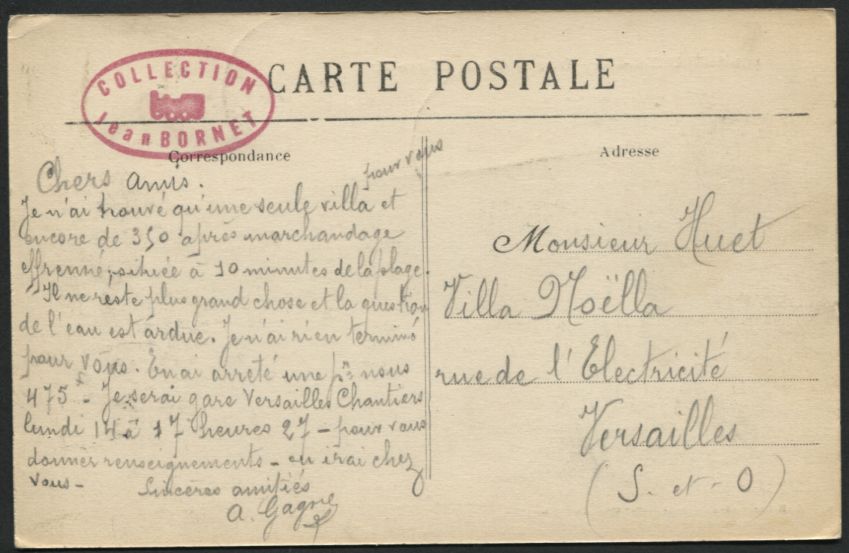 COLLECTION
Jean BORNET
CARTE POSTALE
Correspondance
Adresse
Chers amis.
pour vous
Je n'ai trouvé qu'une seule villa et
encore de 350 après marchandage
effrenné, située à 10 minutes de la plage.
Il ne reste plus grand chose et la question
de l'eau est ardue. Je n'ai rien terminé
pour vous. En ai arreté une pr nous
475f - Je serai gare Versailles Chantiers
lundi 14 à 17 heures 27 - pour vous
donner renseignements - ou irai chez
vous -
Sincères amitiés
A. Gagne
Monsieur Huet
Villa Noëlla
rue de l'Electricité
Versailles
(S. et. O)